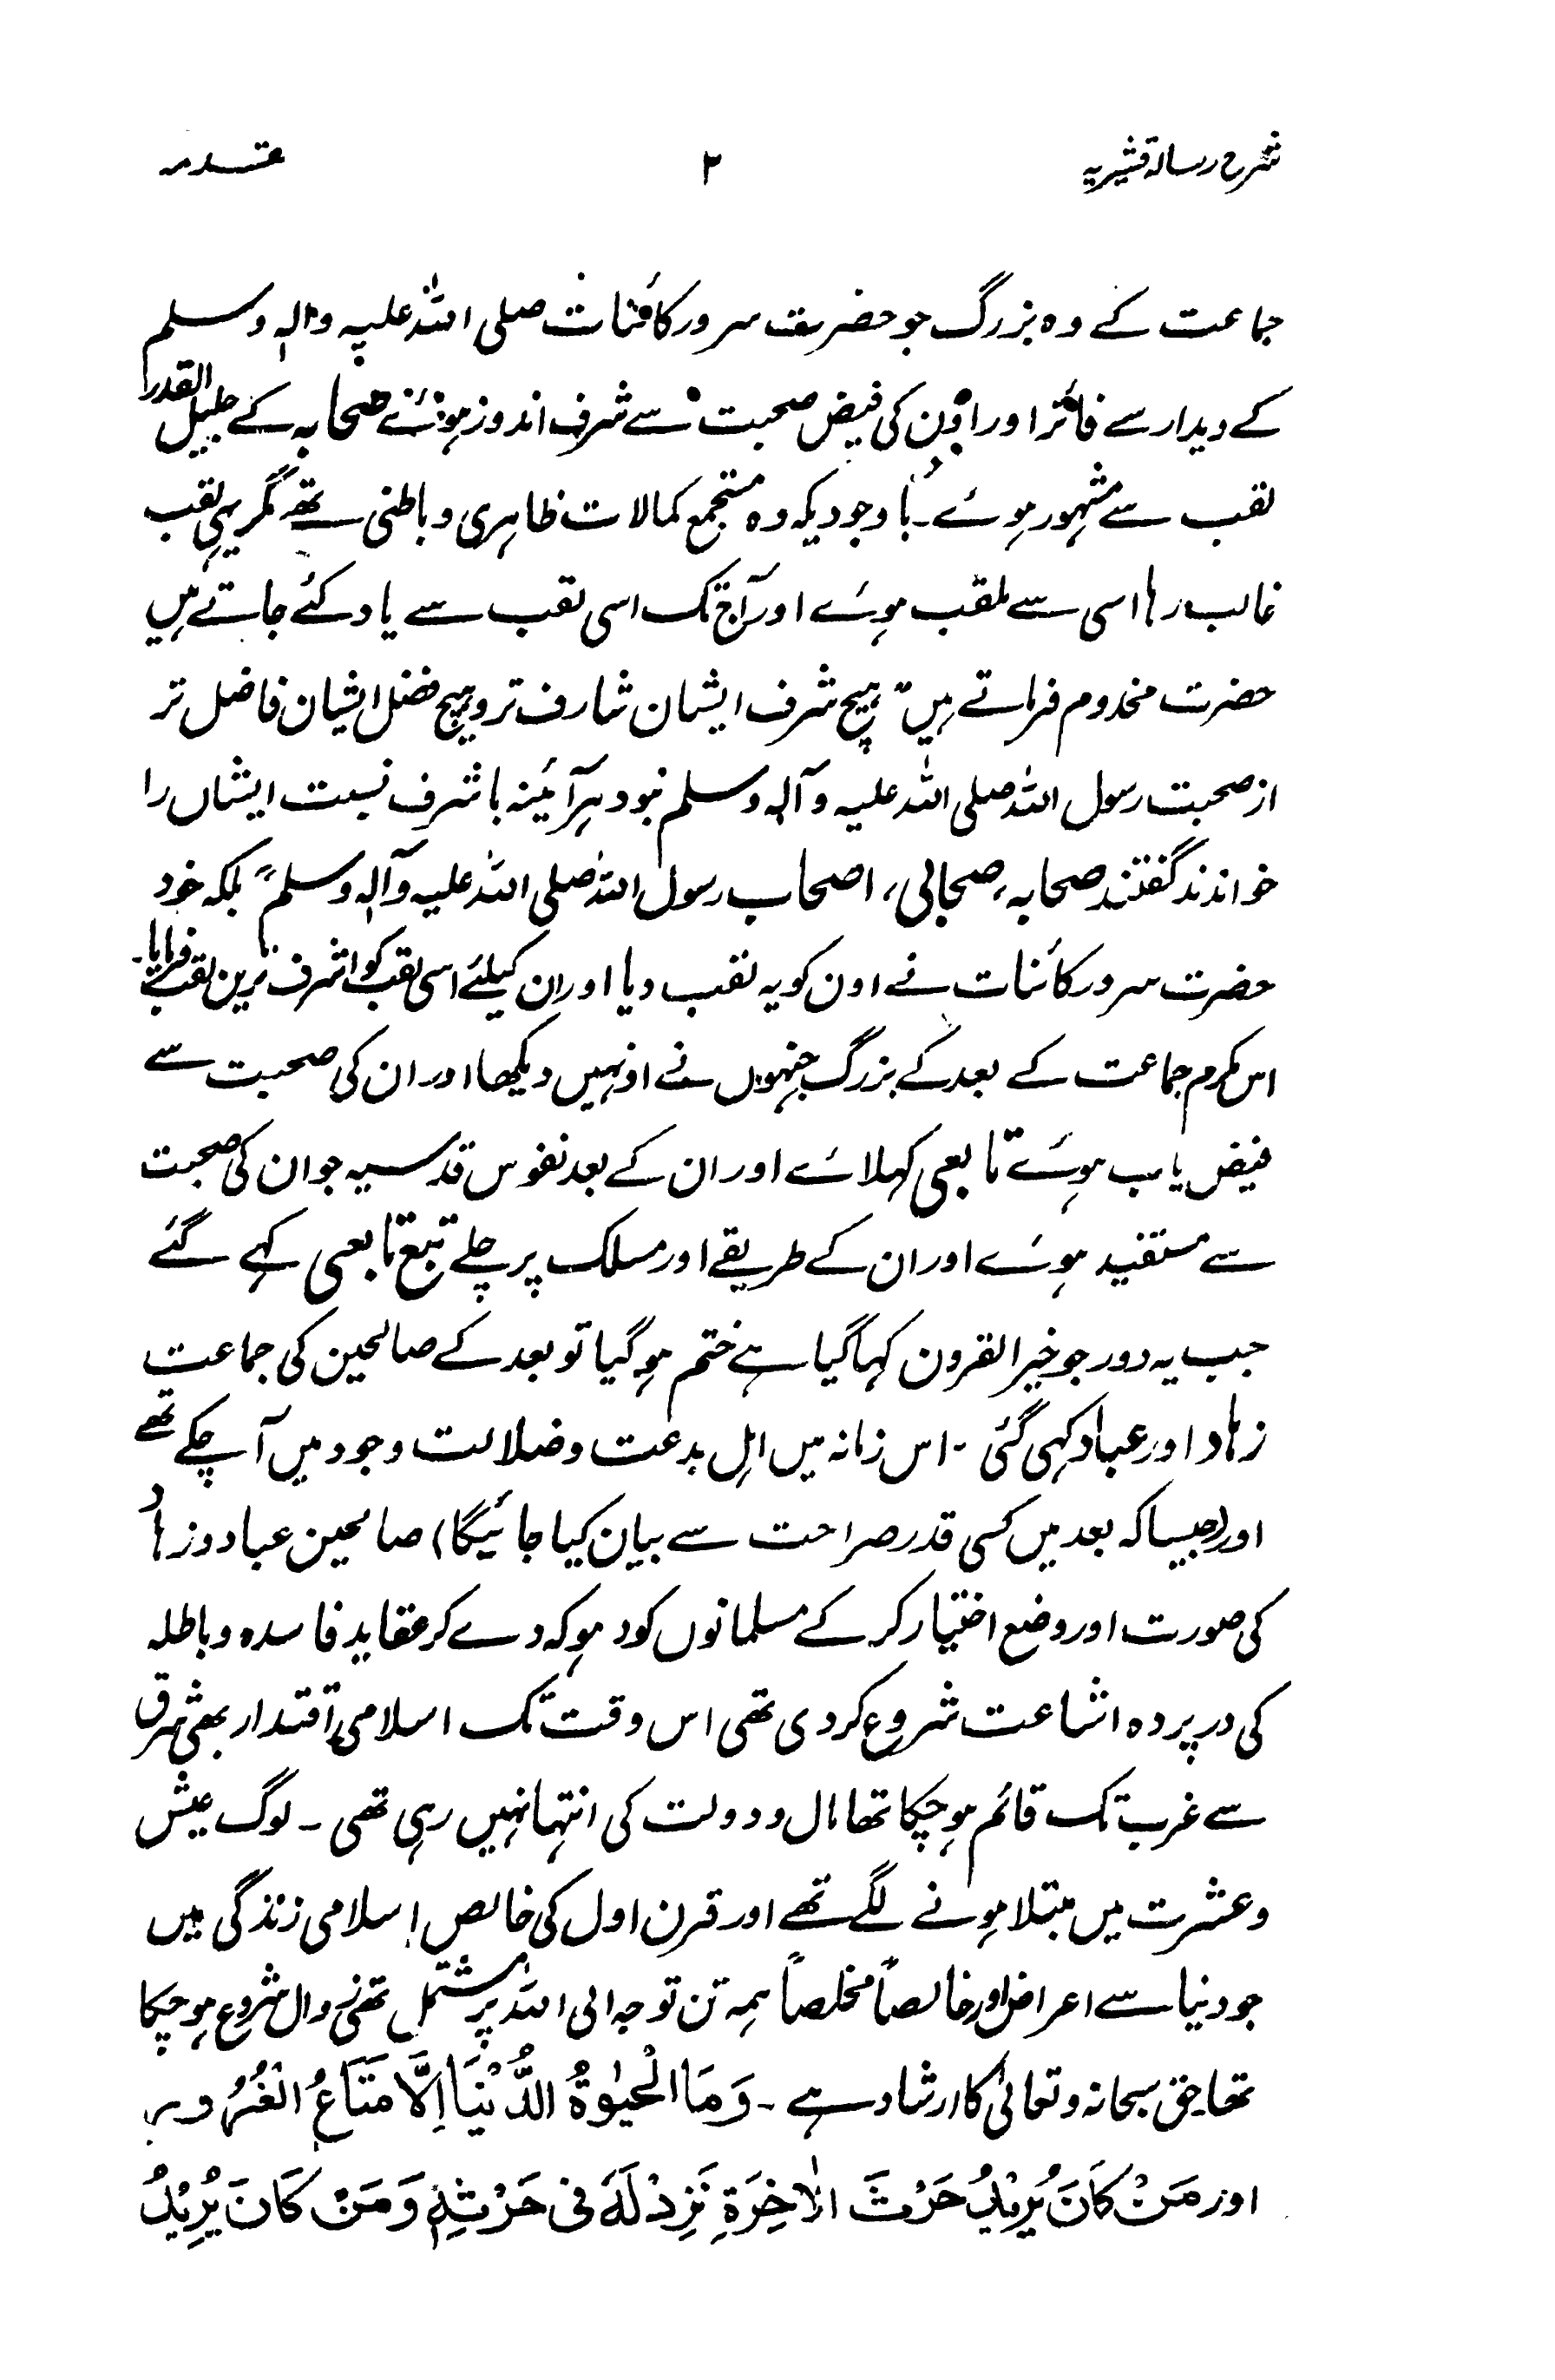 شرح رسالۃ قشیریہ ۲ مقدمہ
جماعت کے وہ بزرگ جو حضرت سرور کائنات صلی اللہ علیہ والہٖ وسلم
کے دیدار سے فائز اور اون کی فیض صحبت سے شرف اندوز ہوئے صحابہ کے جلیل القدر
لقب سے مشہور ہوئے۔ باوجودیکہ وہ مستجمع کمالات ظاہری و باطنی تھے مگر یہی لقب
غالب رہا اسی سے ملقب ہوئے اور آج تک اسی لقب سے یاد کئے جاتے ہیں
حضرت مخدوم فرماتے ہیں ” ہیچ شرف ایشان شارف تر و ہیچ فضل ایشان فاضل تر
از صحبت رسول اللہ صلی اللہ علیہ و آلہٖ وسلم نبود ہر آئینہ با شرف نسبت ایشاں را
خواندند گفتند صحابہ، صحابی، اصحاب رسول اللہ صلی اللہ علیہ وآلہٖ وسلم“ بلکہ خود
حضرت سرور کائنات نے اون کو یہ لقب دیا اور ان کیلئے اسی لقب کو اشرف ترین لقب فرمایا۔
اس مکرم جماعت کے بعد کے بزرگ جنہوں نے اونہیں دیکھا اور ان کی صحبت سے
فیض یاب ہوئے تابعی کہلائے اور ان کے بعد نفوس قدسیہ جو ان کی صحبت
سے مستفید ہوئے اور ان کے طریقے اور مسلک پر چلے تبع تابعی کہے گئے
جب یہ دور جو خیر القرون کہا گیا ہے ختم ہو گیا تو بعد کے صالحین کی جماعت
زہاد اور عباد کہی گئی ۔ اس زمانہ میں اہل بدعت وضلالت وجود میں آ چکے تھے
اور (جیسا کہ بعد میں کسی قدر صراحت سے بیان کیا جائیگا) صالحین عباد و زہاد
کی صورت اور وضع اختیار کر کے مسلمانوں کو دہوکہ دے کر عقاید فاسدہ و باطلہ
کی درپردہ اشاعت شروع کر دی تھی اس وقت تک اسلامی اقتدار بھی شرق
سے غرب تک قائم ہو چکا تھا مال و دولت کی انتہا نہیں رہی تھی ۔ لوگ عیش
و عشرت میں مبتلا ہونے لگے تھے اور قرن اول کی خالص اسلامی زندگی میں
جو دنیا سے اعراض اور خالصاً مخلصاً ہمہ تن توجہ الی اللہ پر مشتمل تھی زوال شروع ہو چکا
تھا حق سبحانہ وتعالیٰ کا ارشاد ہے ۔ وَمَا الْحَیٰوۃُ الدُّنْیَا اِلَّا مَتَاعُ الْغُرُوْرِ
اور مَنْ کَانَ یُرِیْدُ حَرْثَ الْاٰخِرَۃِ نَزِدْ لَہٗ فِی حَرْثِہٖ وَمَنْ کَانَ یُرِیْدُ